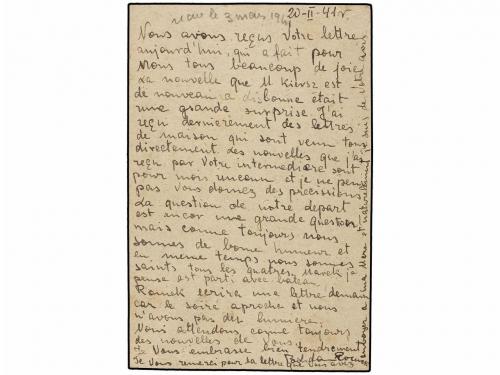 reçue le 3 mars 1941
20-II-41 r.
Nous avons reçus Votre lettre
aujourd'hui, qui a fait pour
nous tous beaucoup de joie
La nouvelle que M Kiersz est
de nouveau a disbonne était
une grande surprise J'ai
reçu dernierement des lettres
de maison qui sont venu tous
directement. Les nouvelles que j'ai
reçu par Votre intermediere sont
pour mois inconu et je ne peux
pas Vous donner des précisions
La question de notre depart
est encor une grande question
mais comme toujours nous
sommes de bonne humeur et
en meme temps nous sommes
saints tous les quatres. Marek je
pense est parti avec bateau
Romek ecrira une lettre demain
car le soire aproche et nous
n'avons pas de lumiere.
Nous attendons comme toujours
des nouvelles de Vous.
Vous embrasse bien tendrement
Je Vous remerci pour la lettre que Vous avez
envoyé a ma Mere et naturellement je suis de Votre avis